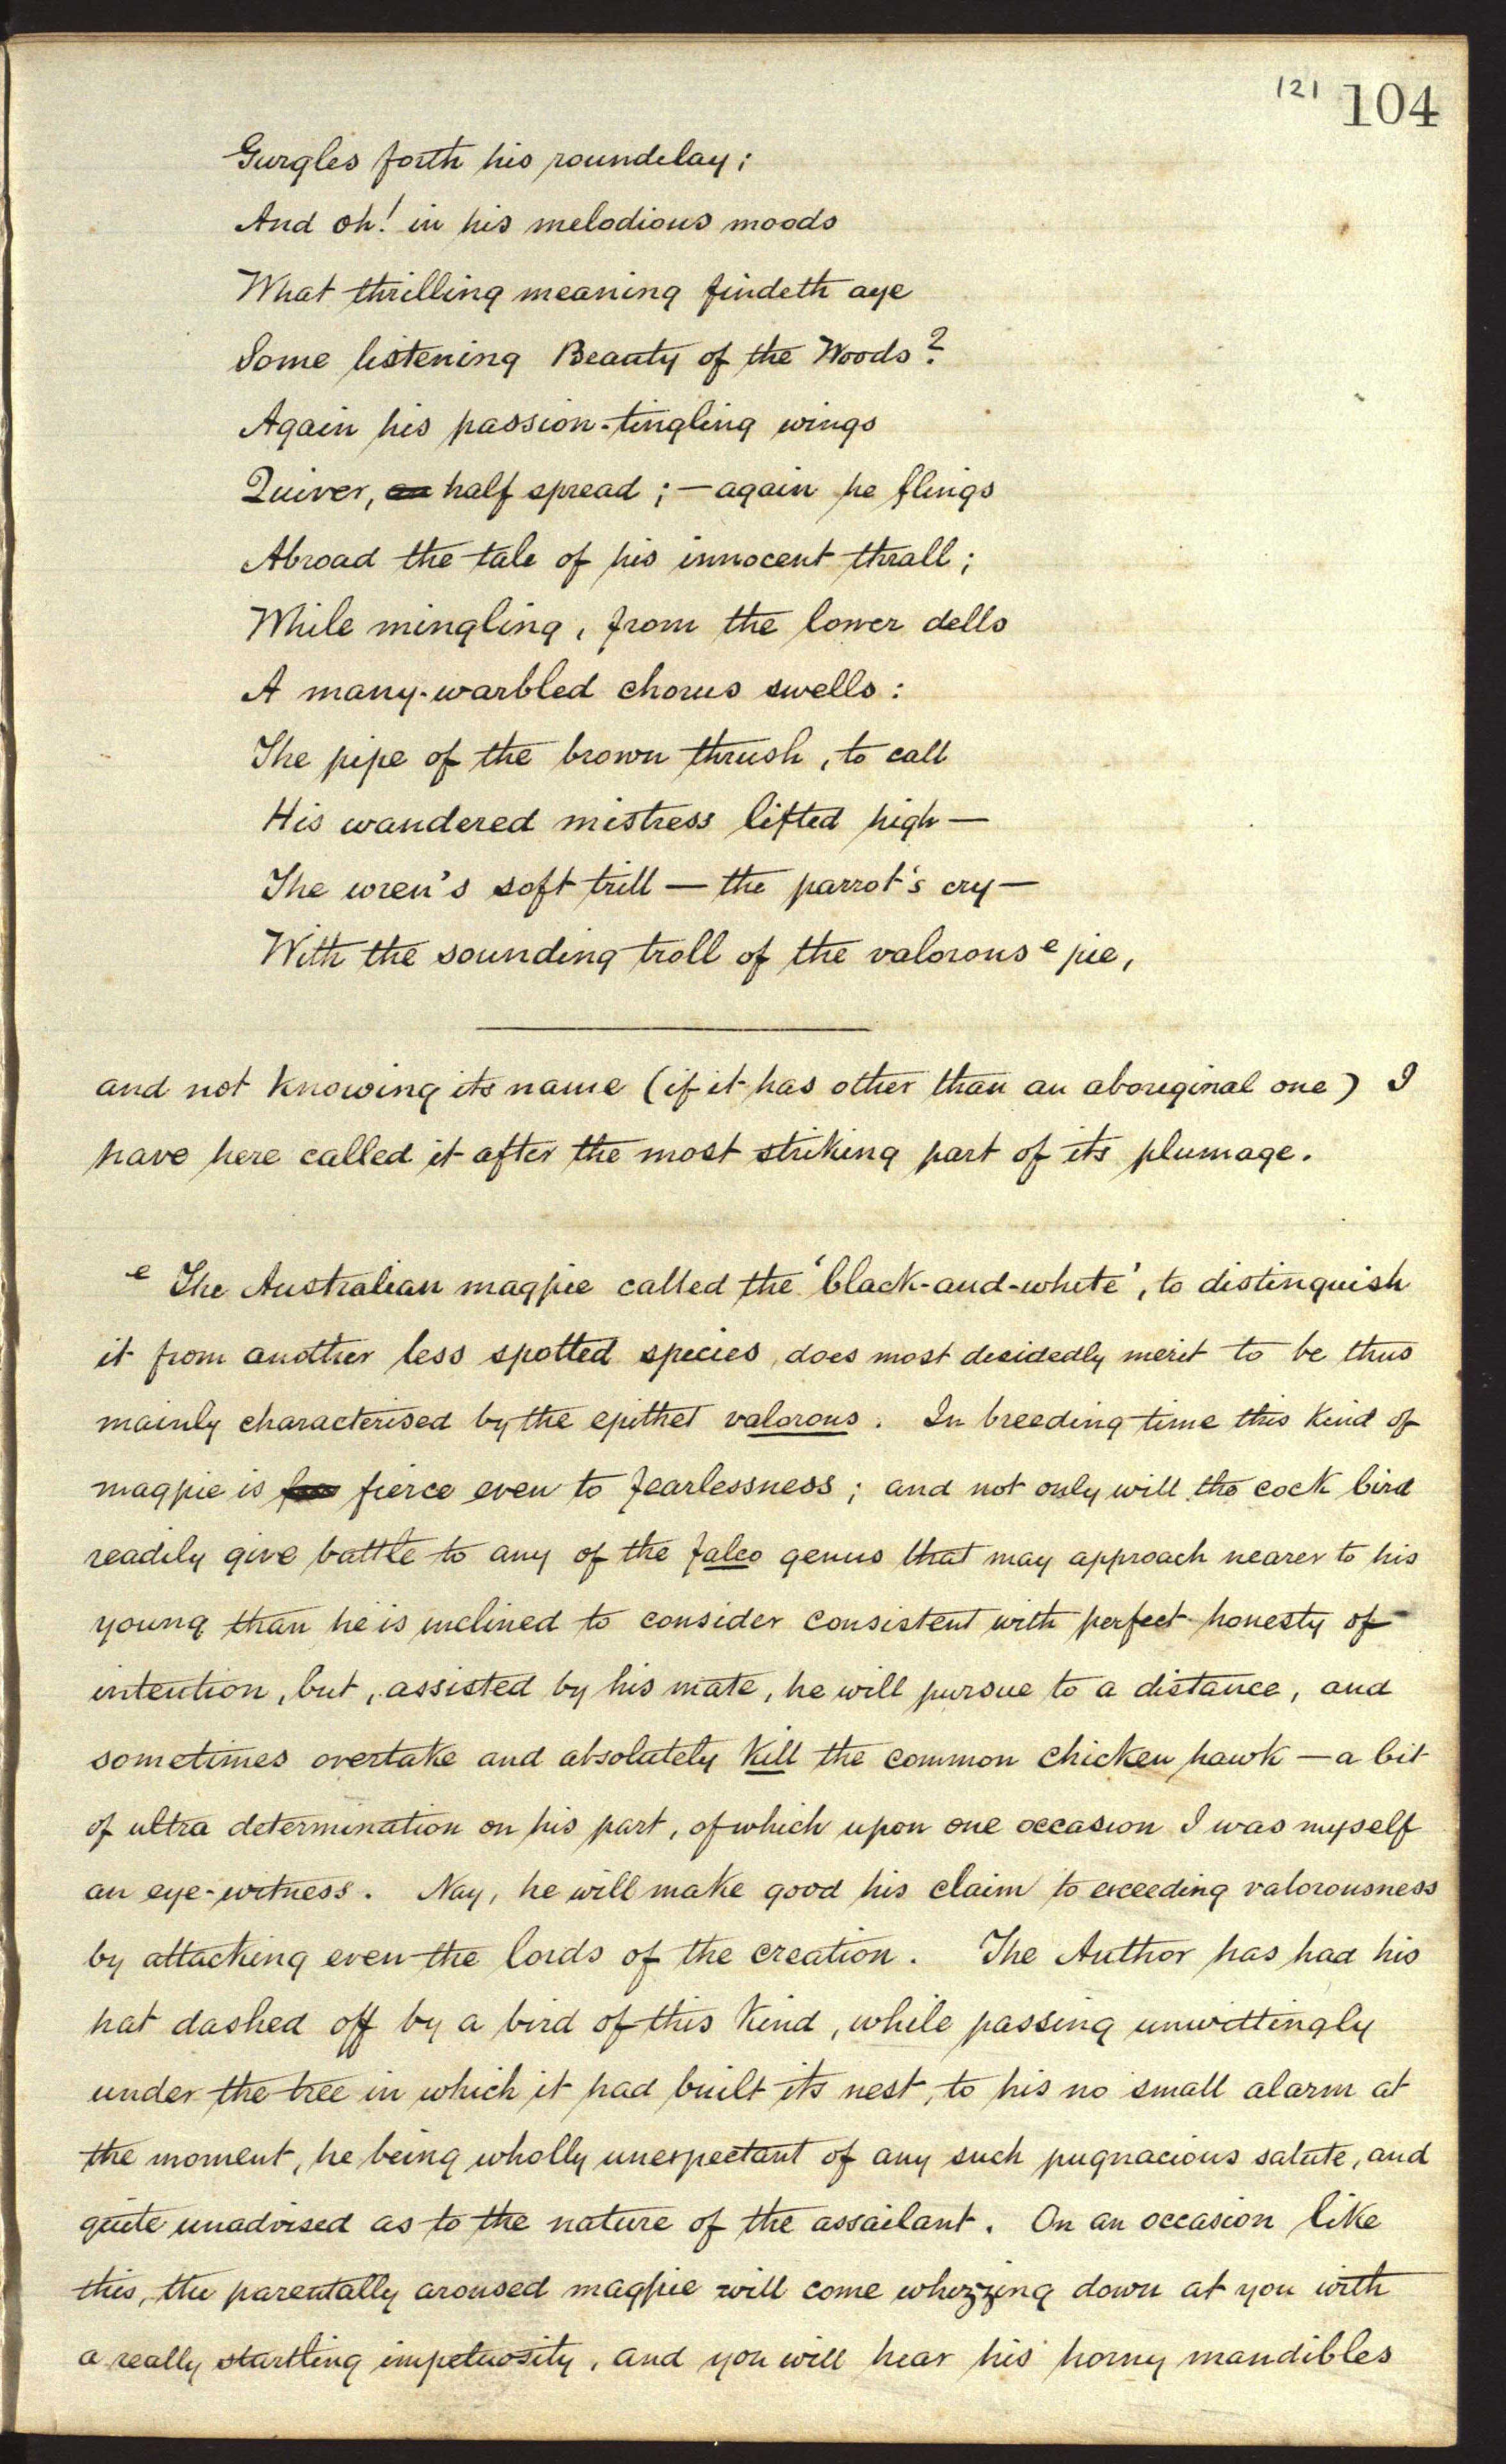 121 104
Gurgles forth his roundelay;
And oh! in his melodious moods
What thrilling meaning findeth aye
Some listening Beauty of the Woods?
Again his passion-tingling wings
Quiver, half spread; — again he flings
Abroad the tale of his innocent thrall;
While mingling, from the lower dells
A many-warbled chorus swells:
The pipe of the brown thrush, to call
His wandered mistress lifted high —
The wren's soft trill — the parrot's cry —
With the sounding troll of the valorous e pie,
and not knowing its name (if it has other than an aboriginal one) I
have here called it after the most striking part of its plumage.
e The Australian magpie called the 'black-and-white', to distinguish
it from another less spotted species, does most decidedly merit to be thus
mainly characterised by the epithet valorous. In breeding time this kind of
magpie is fierce even to fearlessness; and not only will the cock bird
readily give battle to any of the falco genus that may approach nearer to his
young than he is inclined to consider consistent with perfect honesty of
intention, but, assisted by his mate, he will pursue to a distance, and
sometimes overtake and absolutely kill the common chicken hawk — a bit
of ultra determination on his part, of which upon one occasion I was myself
an eye-witness. Nay, he will make good his claim to exceeding valorousness
by attacking even the lords of the creation. The Author has had his
hat dashed off by a bird of this kind, while passing unwittingly
under the tree in which it had built its nest, to his no small alarm at
the moment, he being wholly unexpectant of any such pugnacious salute, and
quite unadvised as to the nature of the assailant. On an occasion like
this, the parentally aroused magpie will come whizzing down at you with
a really startling impetuosity, and you will hear his horny mandibles